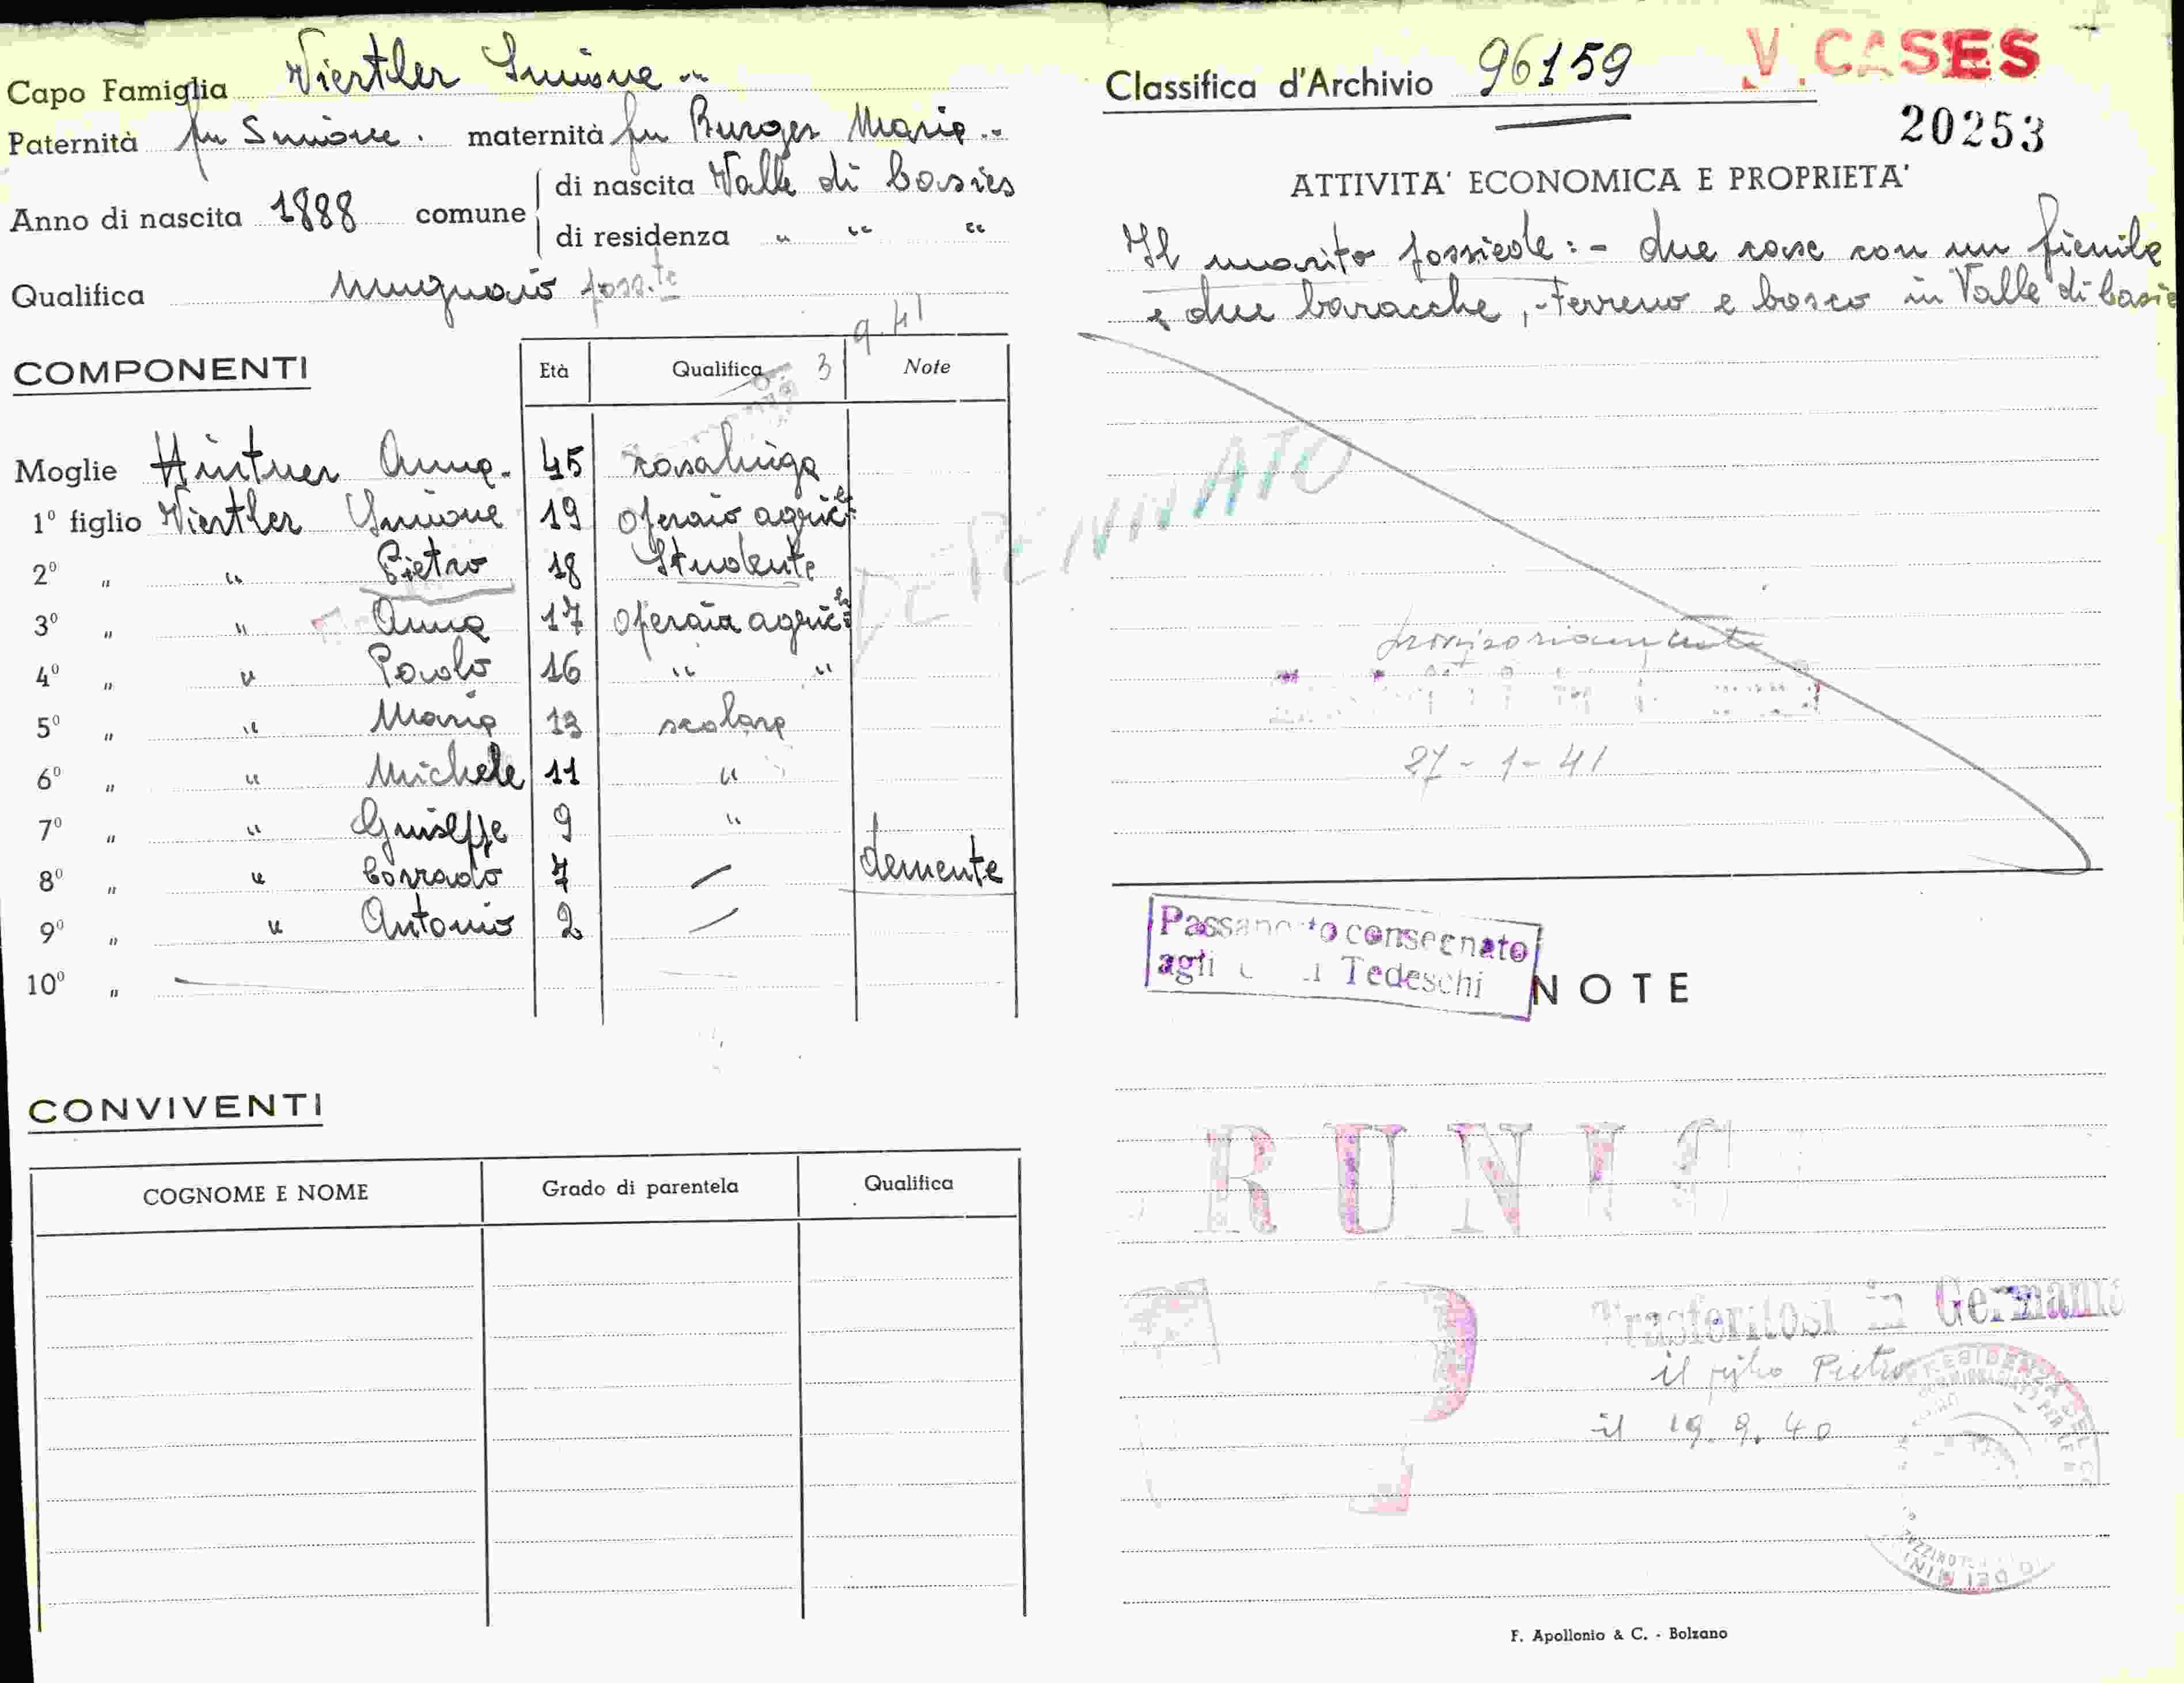 Capo Famiglia Viertler Simone
Paternità fu Simone. maternità fu Burger Maria
Anno di nascita 1888 comune di nascita Valle di Casies
di residenza " " "
Qualifica mugnaio poss.te
9.41
COMPONENTI Età Qualifica 3 Note
Moglie Hintner Anna. 45 casalinga
1º figlio Viertler Simone 19 operaio agric.le
2º " " Pietro 18 Studente
3º " " Anna 17 operaia agric.la
4º " " Paolo 16 " "
5º " " Maria 13 scolara
6º " " Michele 11 "
7º " " Giuseppe 9 "
8º " " Corrado 7 demente
9º " " Antonio 2
10º "
CONVIVENTI
COGNOME E NOME Grado di parentela Qualifica
Classifica d'Archivio 96159
V. CASES
20253
ATTIVITA' ECONOMICA E PROPRIETA'
Il marito possiede: - due case con un fienile
e due baracche, - Terreno e bosco in Valle di Casie
provvisoriamente
27-1-41
Passaporto consegnato
agli Tedeschi
NOTE
BRUNICO
Trasferitosi in Germania
il figlio Pietro
il 19.9.40
F. Apollonio & C. - Bolzano